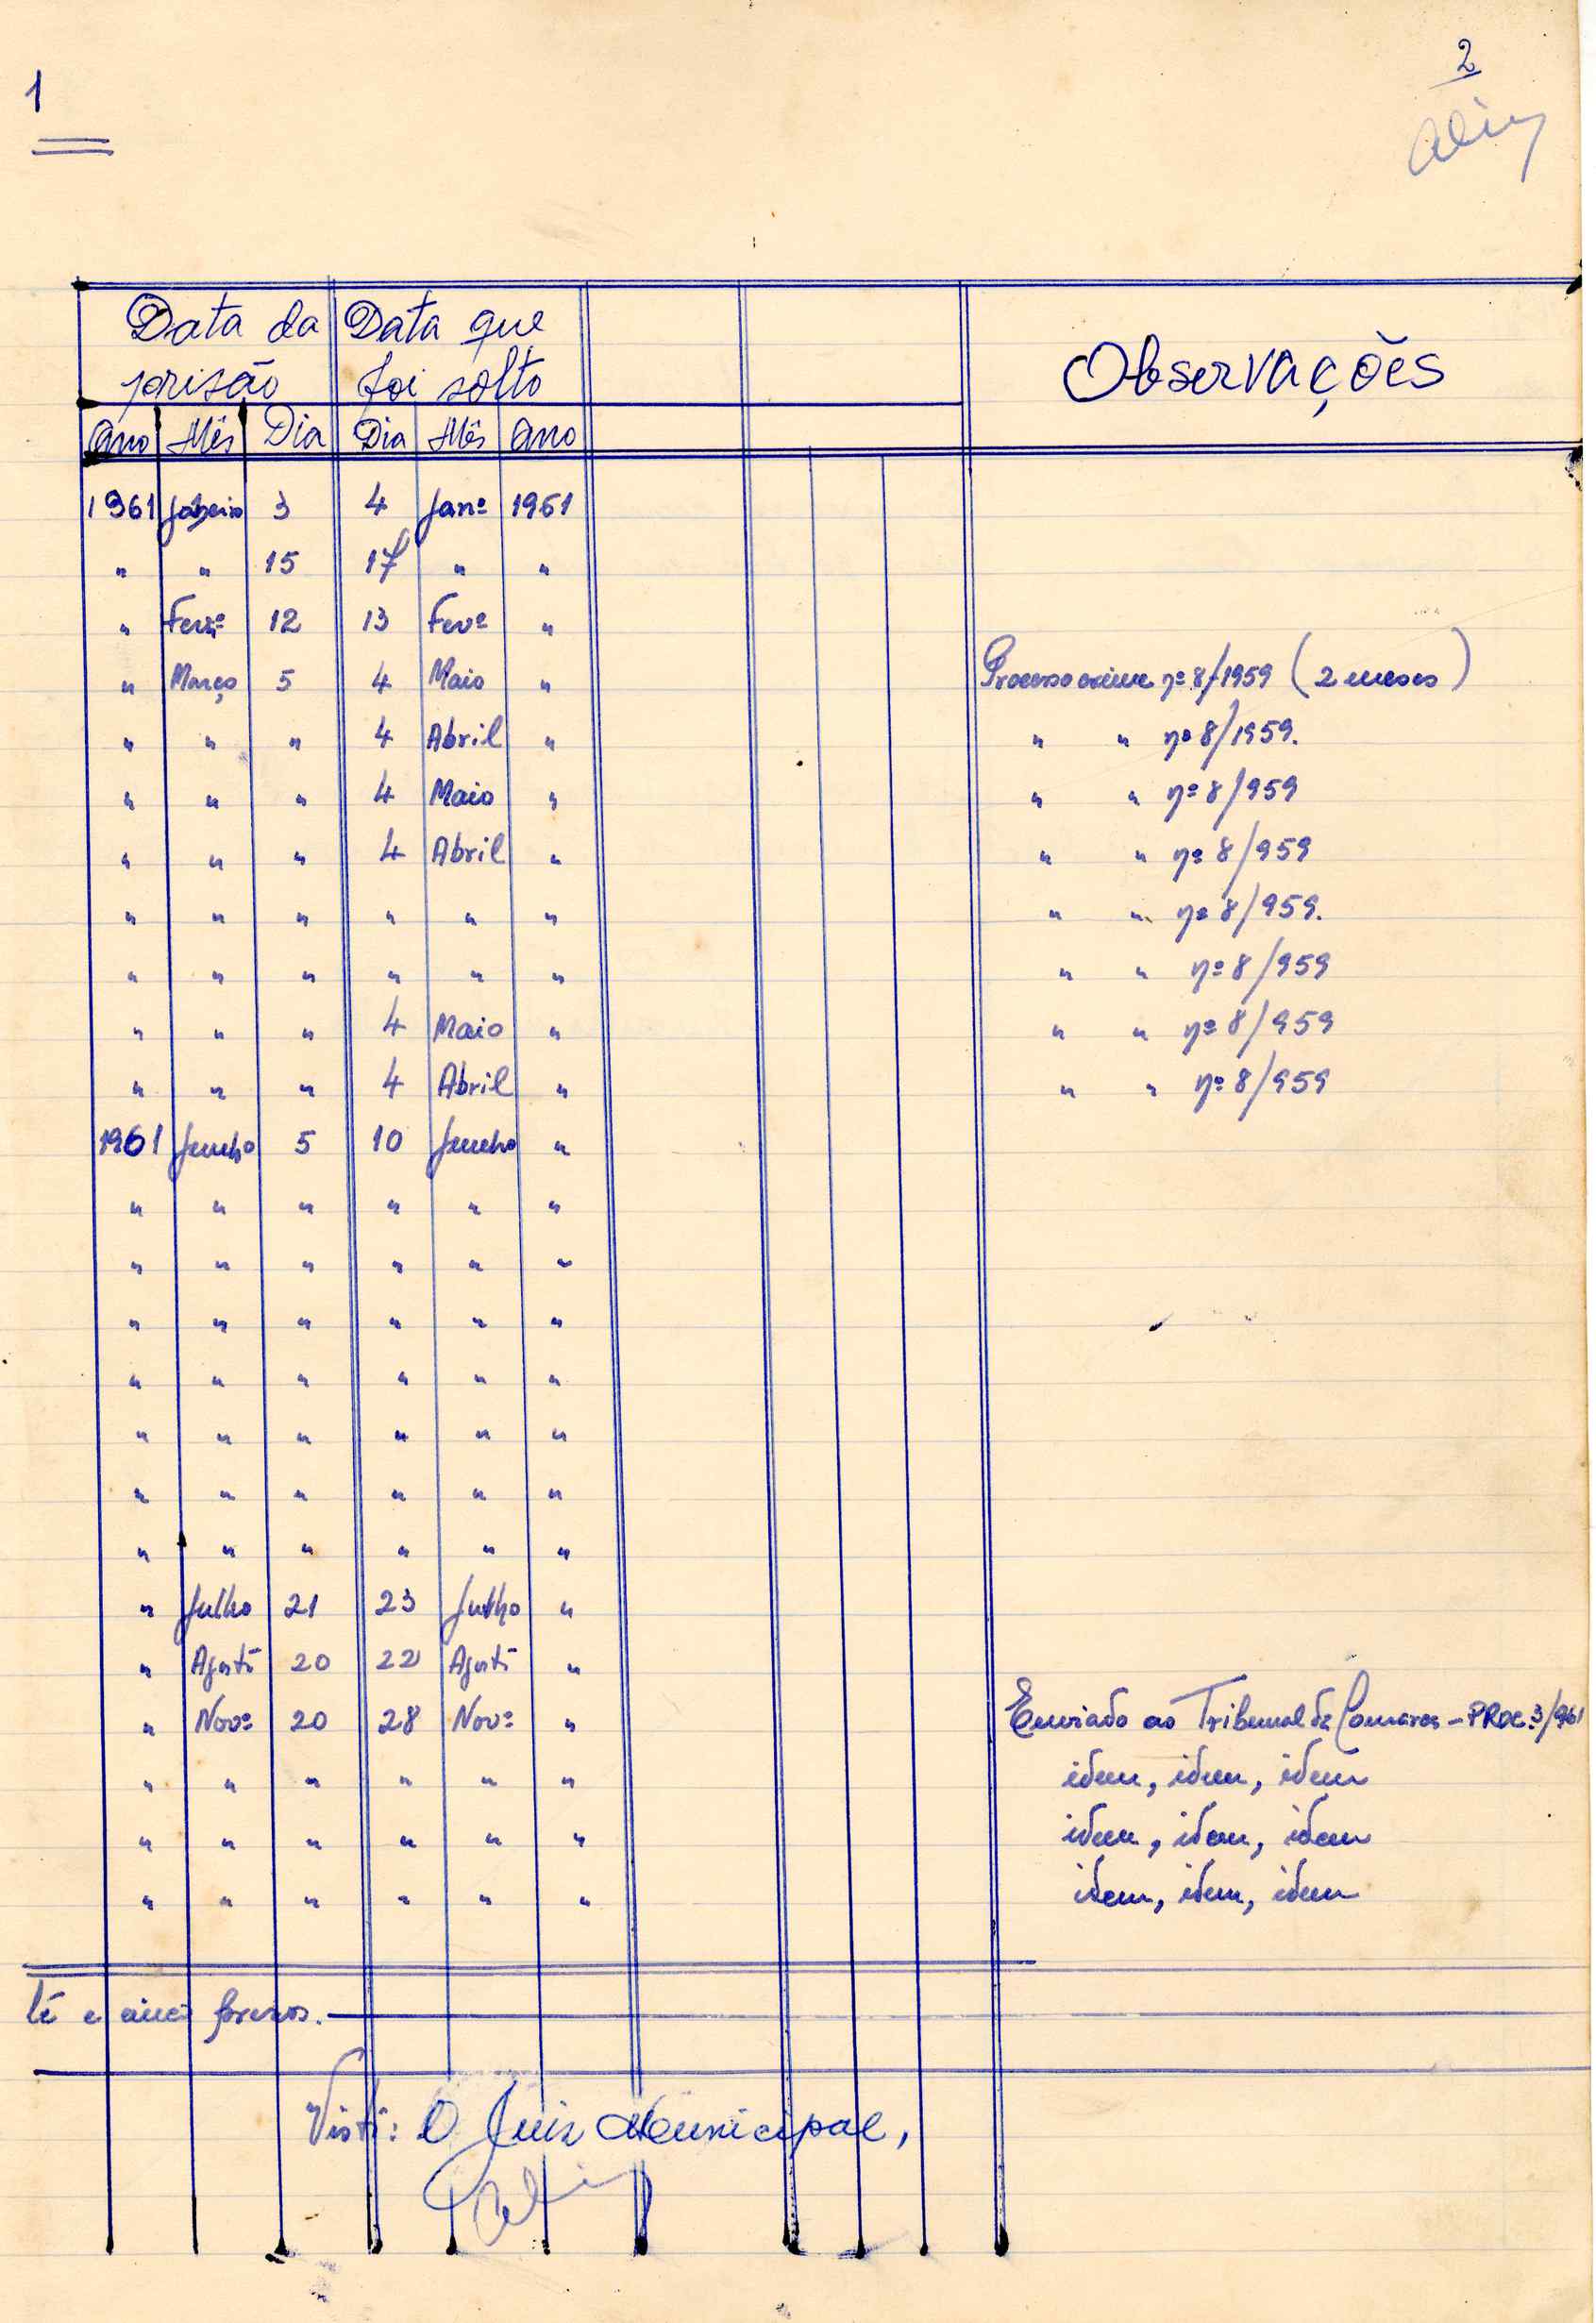 1
2
Data da Data que
prisão foi solto Observações
Ano Mês Dia Dia Mês Ano
1961 Janeiro 3 4 Janº 1961
" " 15 17 " "
" Fevº 12 13 Fevº "
" Março 5 4 Maio " Processo crime nº 8/1959 (2 meses)
" " " 4 Abril " " " nº 8/1959.
" " " 4 Maio " " " nº 8/959
" " " 4 Abril " " " nº 8/959
" " " " " " " " nº 8/959.
" " " " " " " " nº 8/959
" " " 4 Maio " " " nº 8/959
" " " 4 Abril " " " nº 8/959
1961 Junho 5 10 Junho "
" " " " " "
" " " " " "
" " " " " "
" " " " " "
" " " " " "
" " " " " "
" " " " " "
" Julho 21 23 Julho "
" Agosto 20 22 Agosto "
" Novº 20 28 Novº " Enviado ao Tribunal da Comarca - PROC. 3/961
" " " " " " idem, idem, idem
" " " " " " idem, idem, idem
" " " " " " idem, idem, idem
te e cinco presos.
Visto: O Juiz Municipal,